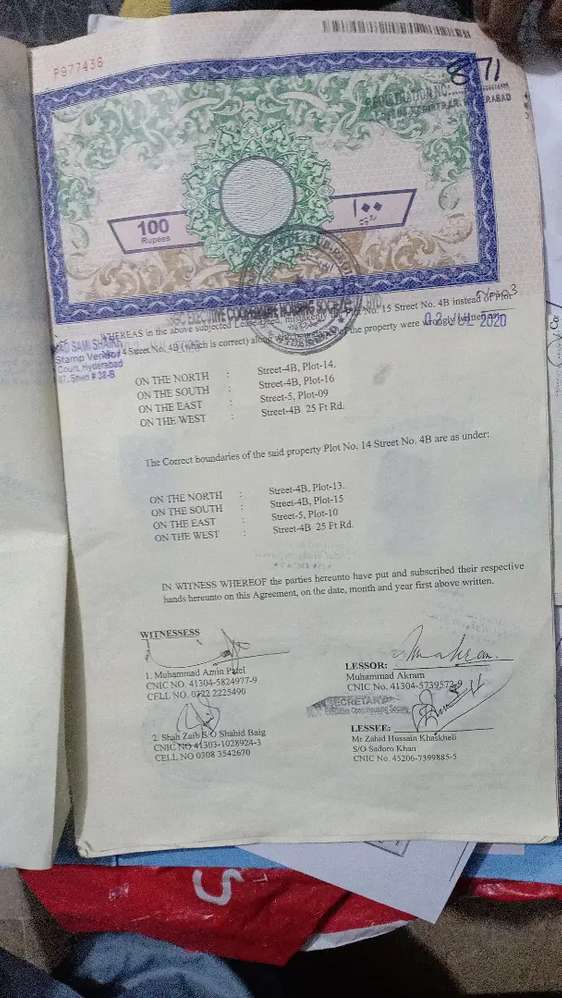 P977438
8771
REGISTRATION NO.
HYDERABAD
100
Rupees
۱۰۰
روپیہ
EXECUTIVE COOPERATIVE HOUSING SOCIETY
HYDERABAD
WHEREAS in the above subjected Lease Plot No. 15 Street No. 4B instead of Plot
No. 14 Street No. 4B (which is correct) of the property were wrongly
02 JUL 2020
Stamp Vendor
Court, Hyderabad
ON THE NORTH : Street-4B, Plot-14.
ON THE SOUTH : Street-4B, Plot-16
ON THE EAST : Street-5, Plot-09
ON THE WEST : Street-4B 25 Ft Rd.
The Correct boundaries of the said property Plot No. 14 Street No. 4B are as under:
ON THE NORTH : Street-4B, Plot-13.
ON THE SOUTH : Street-4B, Plot-15
ON THE EAST : Street-5, Plot-10
ON THE WEST : Street-4B 25 Ft Rd.
IN WITNESS WHEREOF the parties hereunto have put and subscribed their respective
hands hereunto on this Agreement, on the date, month and year first above written.
WITNESSESS
1. Muhammad Amin Patel
CNIC NO. 41304-5824977-9
CELL NO. 0322 2225490
LESSOR:
Muhammad Akram
CNIC No. 41304-5739572-9
SECRETARY
Executive Coop: Housing Society
2. Shah Zaib S/O Shahid Baig
CNIC NO 41303-1028924-3
CELL NO 0308 3542670
LESSEE:
Mr Zahid Hussain Khaskheli
S/O Sadoro Khan
CNIC No. 45206-7399885-5